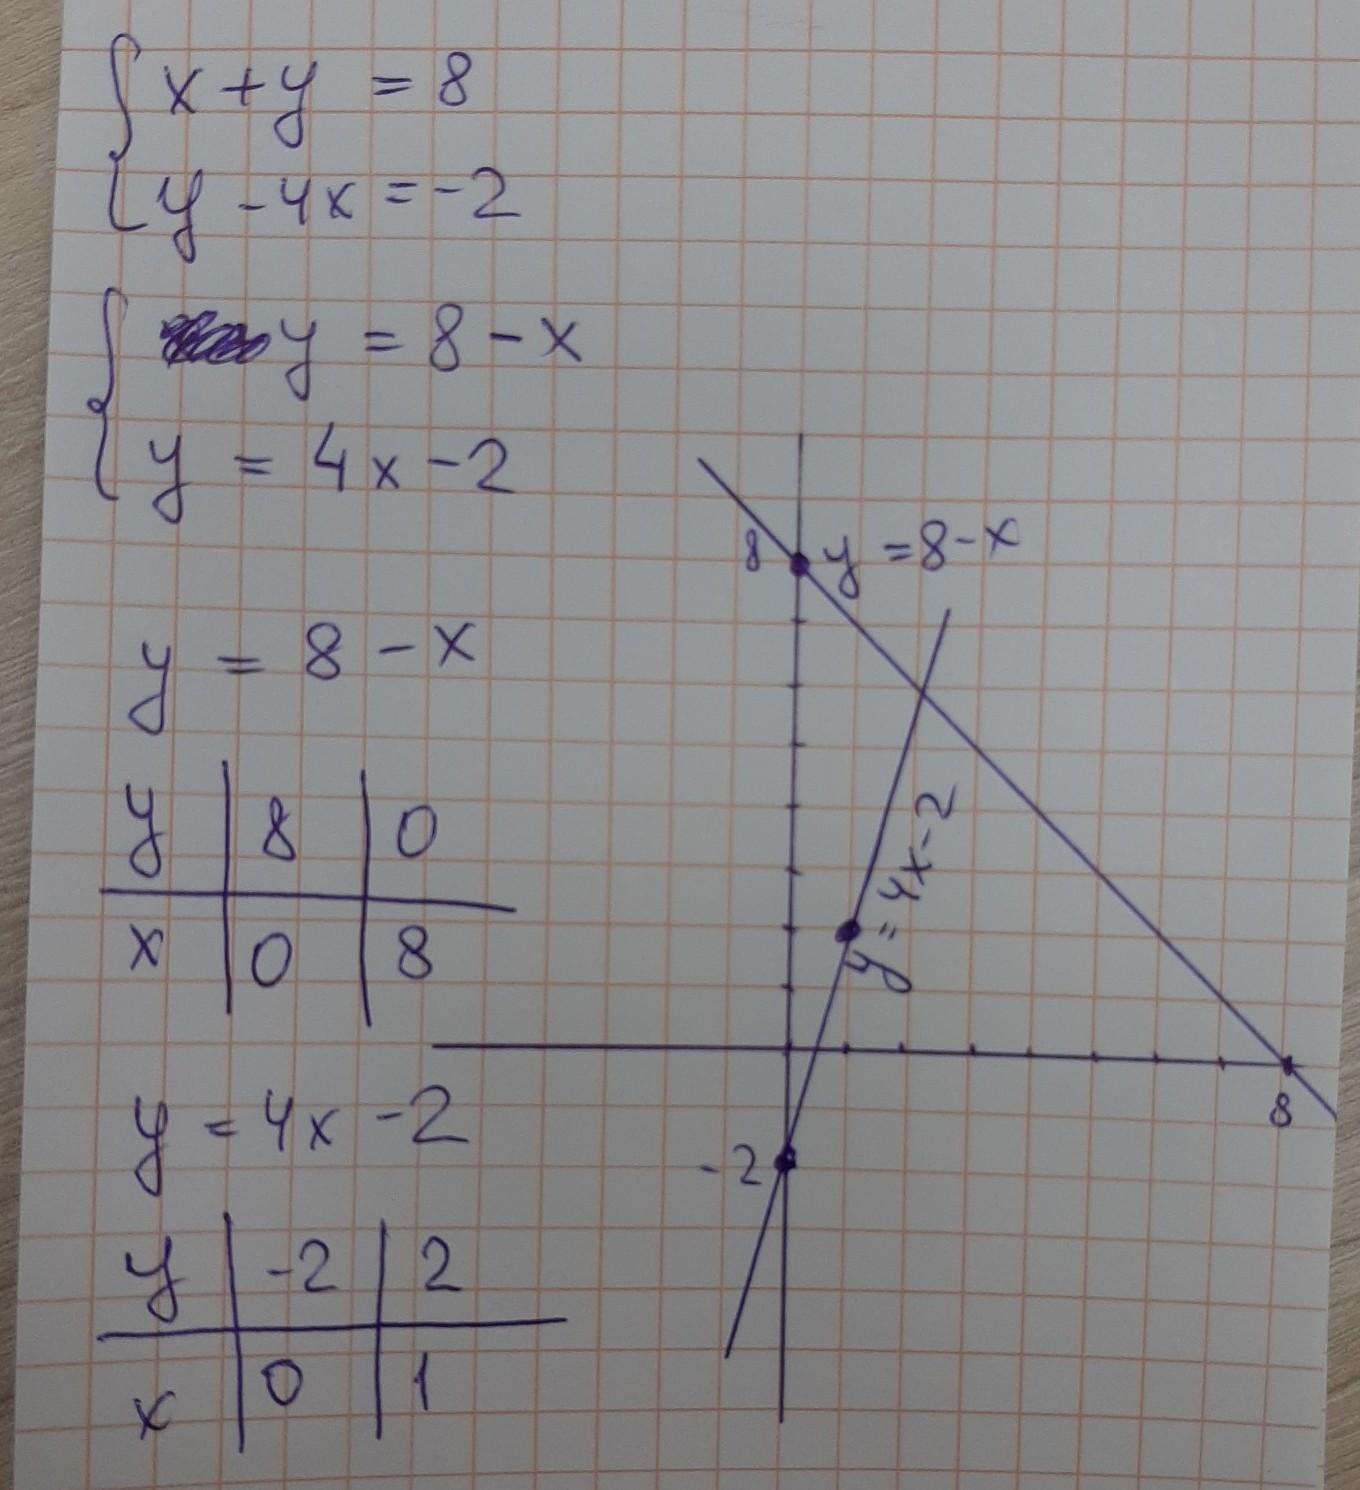 x + y = 8
y - 4x = -2
y = 8 - x
y = 4x - 2
y = 8 - x
y | 8 | 0
x | 0 | 8
y = 4x - 2
y | -2 | 2
x | 0 | 1
8
y = 8 - x
y = 4x - 2
8
-2